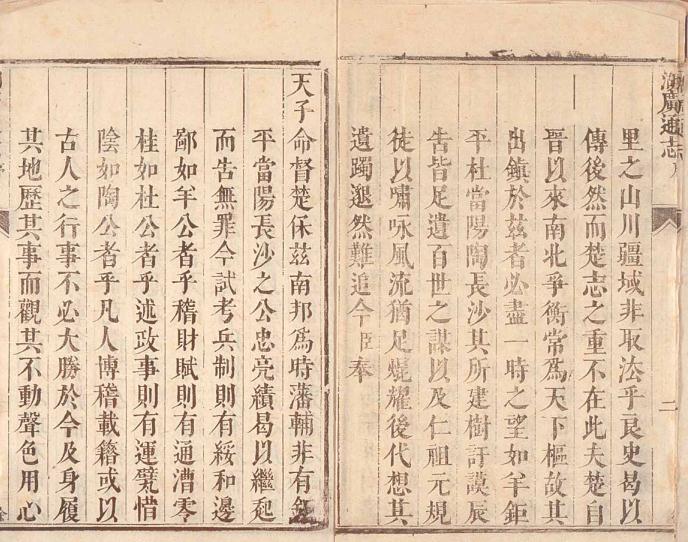 湖廣通志
二
里之山川疆域非取法乎良史曷以
傳後然而楚志之重不在此夫楚自
晉以來南北爭衡常爲天下樞故其
出鎮於兹者必盡一時之望如羊鉅
平杜當陽陶長沙其所建樹訏謨辰
告皆足遺百世之謀以及仁祖元規
徒以嘯咏風流猶足焜耀後代想其
遺躅邈然難追今臣奉
天子命督楚保兹南邦爲時藩輔非有鉅
平當陽長沙之公忠亮績曷以繼起
而告無罪今試考兵制則有綏和邊
鄙如羊公者乎稽財賦則有通漕零
桂如杜公者乎述政事則有運甓惜
陰如陶公者乎凡人博稽載籍或以
古人之行事不必大勝於今及身履
其地歷其事而觀其不動聲色用心